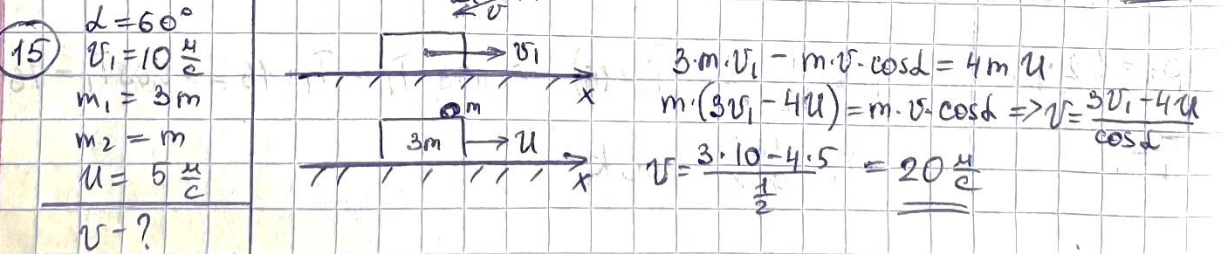 15
α = 60°
v₁ = 10 м/с
m₁ = 3m
m₂ = m
U = 5 м/с
v - ?
v
v₁
x
m
3m
U
x
3·m·v₁ - m·v·cosα = 4m U
m·(3v₁ - 4U) = m·v·cosα => v = (3v₁ - 4U)/cosα
v = (3·10 - 4·5)/(1/2) = 20 м/с